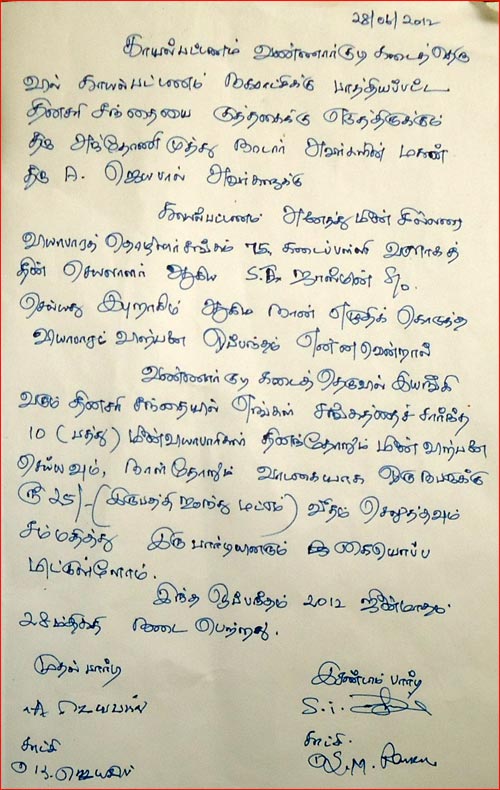 28/06/2012
காயல்பட்டணம் வண்ணார்குடி கடைத்தெரு
வில் காயல்பட்டணம் நகராட்சிக்கு பாத்தியப்பட்ட
தினசரி சந்தையை குத்தகைக்கு எடுத்திருக்கும்
திரு அந்தோணி முத்து நாடார் அவர்களின் மகன்
திரு A. ஜெயபால் அவர்களுக்கு
காயல்பட்டணம் அனைத்து மீன் சில்லரை
வியாபாரத் தொழிலாளர் சங்கம் 75, கடைப்பள்ளி வளாகத்
தின் செயலாளர் ஆகிய S.I. ஜாஸ்மின் S/o.
செய்யது இபுறாகிம் ஆகிய நான் எழுதிக் கொடுத்த
வியாபாரப் விற்பனை ஒப்பந்தம் என்னவென்றால்
வண்ணார்குடி கடைத் தெருவில் இயங்கி
வரும் தினசரி சந்தையில் எங்கள் சங்கத்தைச் சார்ந்த
10 (பத்து) மீன்வியாபாரிகள் தினந்தோறும் மீன் விற்பனை
செய்யவும், நாள்தோறும் வாடகையாக ஒரு நபருக்கு
ரூ 25/- (இருபத்தி ஐந்து மட்டும்) வீதம் செலுத்தவும்
சம்மதித்து இரு பார்டிகளும் கையொப்ப
மிட்டுள்ளோம்.
இந்த ஒப்பந்தம் 2012 ஜூன்மாதம்
28ம்தேதி நடை பெற்றது.
முதல் பார்டி
A ஜெயபால்
சாட்சி
ஜெயபால்
இரண்டாம் பார்டி
S.I.
சாட்சி.
S.M.